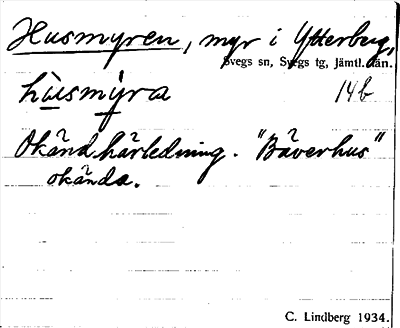 Husmyren, myr i Ytterberg,
Svegs sn, Svegs tg, Jämtl. län.
hùsmýra 14b
Okänd härledning. "Bäverhus"
okända.
C. Lindberg 1934.